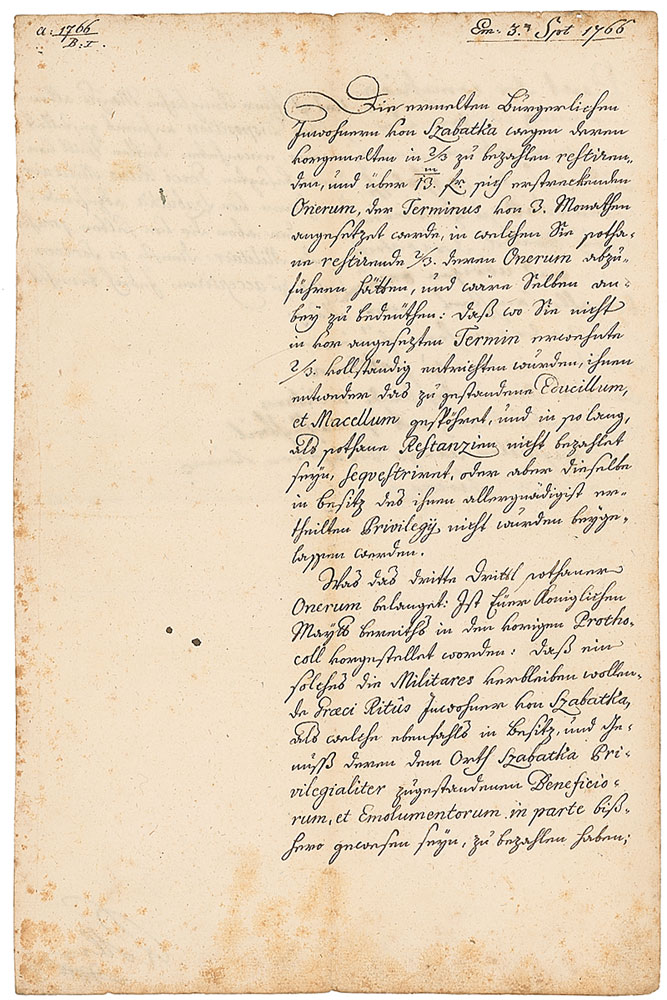 a: 1766
B: I.
Em: 3.ª Spt 1766
Die ermelten Bürgerlichen
Inwohnern von Szabatka wegen deren
vorgemelten in 2/3 zu bezahlen restiren„
den, und über 13.m fr sich erstreckenden
Onerum, der Terminus von 3. Monathen
angesetzet werde, in welchen Sie sotha„
ne restirende 2/3. deren Onerum abzu„
führen hätten, und wäre Selben an„
bey zu bedeuthen: daß wo Sie nicht
in vor angesezten Termin erwehnte
2/3. vollständig entrichten wurden, ihnen
entweder das zugestandene Educillum,
et Macellum gespöhret, und in so lang,
als sothane Restanzien nicht bezahlet
seyn, seqvestriret, oder aber dieselbe
in besitz des ihnen allergnädigist er„
theilten Privilegy nicht wurden beyge„
lassen werden.
Was das dritte Drittl sothaner
Onerum belanget: Ist Euer Königlichen
Maytt bereiths in den vorigen Protho„
coll vorgestellet worden: daß ein
solches die Militares verbleiben wollen„
de Græci Ritûs Inwohner von Szabatka,
als welche ebenfahls in Besitz, und Ge„
nuß deren dem Orth Szabatka Pri„
vilegialiter zugestandenen Beneficio„
rum, et Emolumentorum in parte biß„
hero gewesen seyn, zu bezahlen haben;